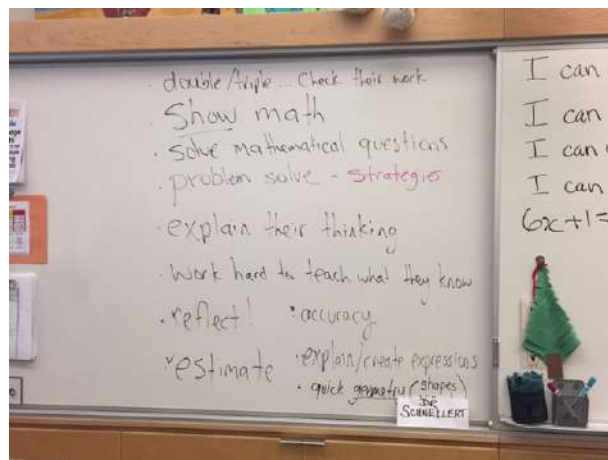 · double/triple... Check their work
· Show math
· solve mathematical questions
· problem solve - strategies
· explain their thinking
· Work hard to teach what they know
· reflect! · accuracy
· estimate · explain/create expressions
· quick geometry (shapes)
DR
SCHNELLERT
I can
I can
I can
I can
6x+1=